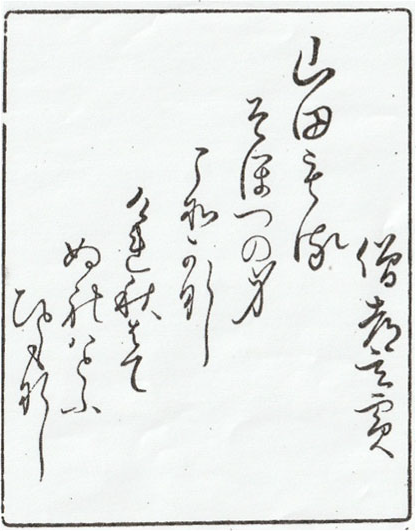 僧都玄賓
山田もる
そほつの身
こそかなし
けれ秋はて
ぬれはとふ
ひともなし